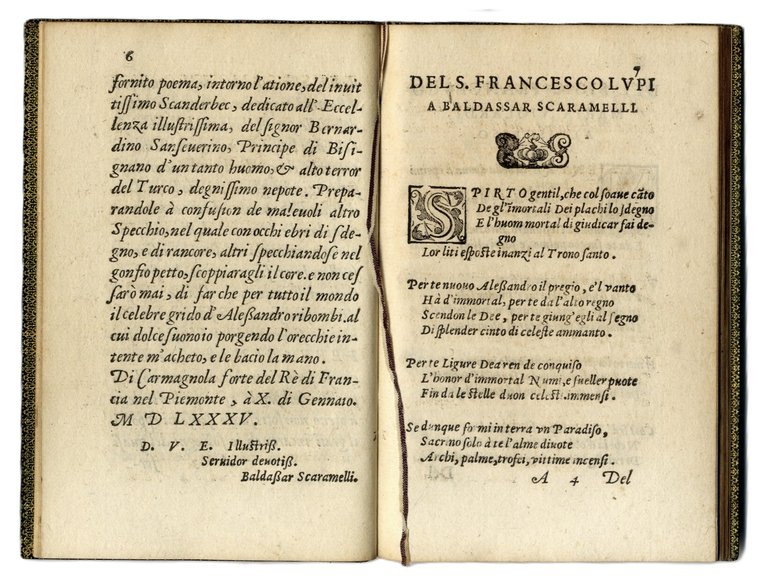 6
fornito poema, intorno l'atione, del inuit
tissimo Scanderbec, dedicato all' Eccel-
lenza illustrissima, del signor Bernar-
dino Sanseuerino, Principe di Bisi-
gnano d'un tanto huomo, & alto terror
del Turco, degnissimo nepote. Prepa-
randole à confusiun de maleuoli altro
Specchio, nel quale con occhi ebri di sde-
gno, e di rancore, altri specchiandose nel
gonfio petto, scoppiaragli il core. e non ces
sarò mai, di far che per tutto il mondo
il celebre grido d'Alessandro ribombi. al
cui dolce suono io porgendo l'orecchie in-
tente m'acheto, e le bacio la mano.
Di Carmagnola forte del Rè di Fran-
cia nel Piemonte, à X. di Gennaro.
M D LXXXV.
D. V. E. Illustriß.
Seruidor deuotiß.
Baldaßar Scaramelli.
7
DEL S. FRANCESCO LVPI
A BALDASSAR SCARAMELLI.
SPIRTO gentil, che col soaue cāto
De gl'īmortali Dei plachi lo sdegno
E l'huom mortal di giudicar fai de-
gno
Lor liti esposte inanzi al Trono santo.
Per te nuouo Aleßandro il pregio, e'l vanto
Hà d'immortal, per te da l'alto regno
Scendon le Dee, per te giung' egli al segno
Di splender cinto di celeste ammanto.
Per te Ligure Dea ren de conquiso
L'honor d'immortal Numi, e sueller puote
Fin da le stelle duon celesti immensi.
Se dunque formi in terra vn Paradiso,
Sacrano solo à te l'alme diuote
Archi, palme, trofei, vittime incensi.
A 4 Del